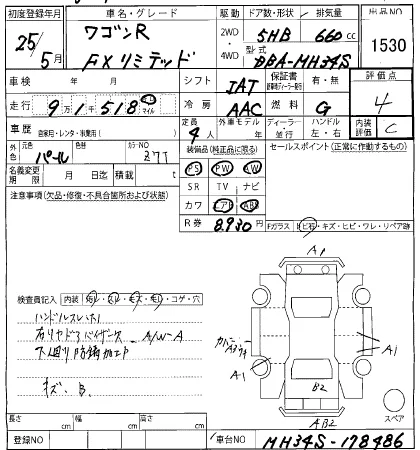 初度登録年月 車名・グレード 駆動 ドア数・形状 排気量 出品NO
25年 5月 ワゴンR FXリミテッド 2WD 4WD 5HB 660cc 1530
型式 DBA-MH34S
車検 年 月 シフト IAT 保証書 有・無 評価点 4
走行 9万1千518 km マイル 冷房 AAC 燃料 G
車歴 自家用・レンタ・事業用( ) 定員 4人 外車モデル 年 ディーラー 並行 ハンドル 左・右 内装評価 C
外色 元色 パール 色替 カラーNO Z7T 装備品(純正品に限る) セールスポイント(正常に作動するもの)
名義変更期限 月 日迄 積載 t PS PW AW
SR TV ナビ
注意事項(欠品・修復・不具合箇所および状態) カワ エアB ABS
R券 8,930円 Fガラス ヒビ石・キズ・ヒビ・ワレ・リペア跡
検査員記入 内装 ヨゴレ・スレ・キズ・ヤレ・コゲ・穴
ハンドルスレ大
A/W-A
下回り防錆加工P
キズ、B.
A1
カバー
A1
A1
B2
AB2
スペア
長さ cm 幅 cm 高さ cm
登録NO 車台NO MH34S-178486